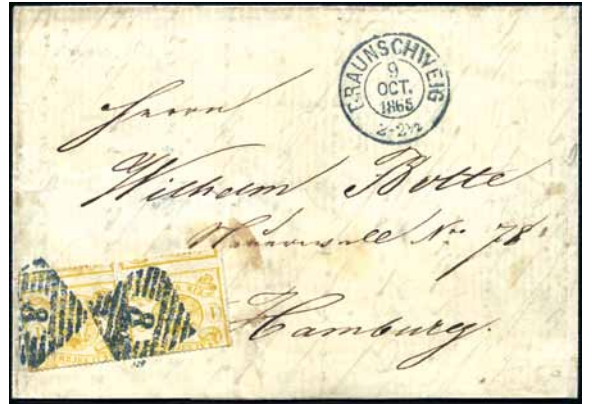 BRAUNSCHWEIG
9
OCT.
1865
2-2½
Herrn
Wilhelm Botte
Neuerwall No 78
Hamburg.
8
8